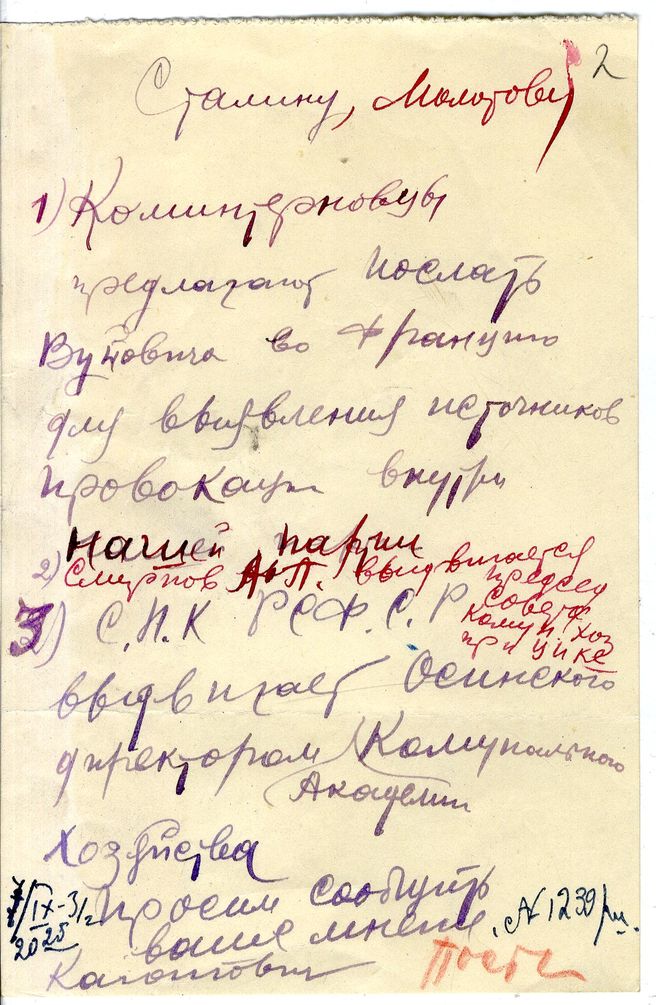 2
Сталину, Молотову
1) Коминтерновцы
предлагают послать
Вуйовича во Францию
для выявления источников
провокации внутри
нашей партии
2) Смирнов А.П. выдвигается
председ
совета
комун. хоз
при ЦИКе
3) С.Н.К РСФ.С.Р
выдвигает Осинского
директором Комунального
Академии
хозяйства
Просим сообщить
ваше мнение.
Каганович
7/IX-31
20 25
№ 1239/